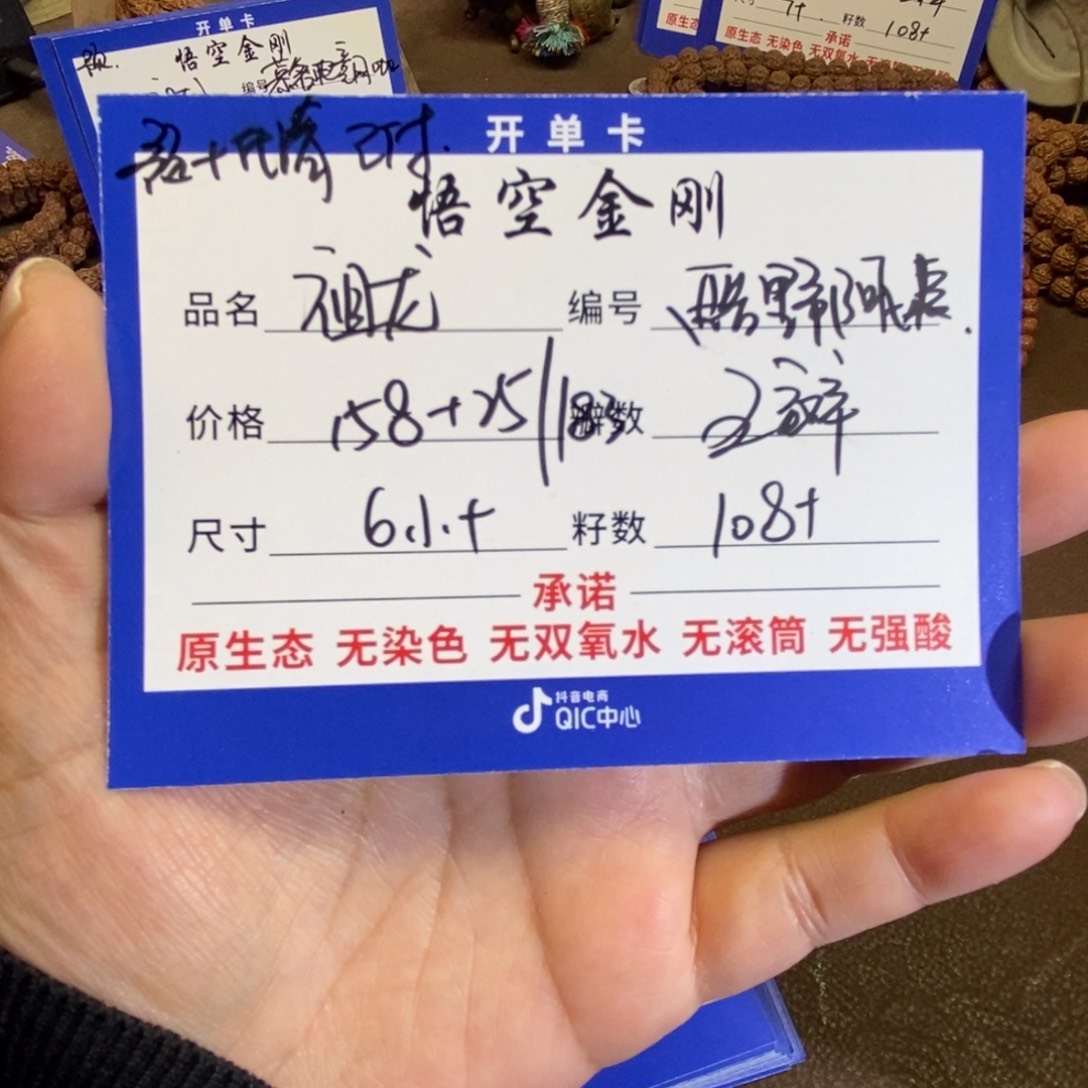 开单卡
悟空金刚
开单卡
悟空金刚
品名 祖龙 编号
价格 158+25 183 瓣数
尺寸 6.1.+ 籽数 108+
承诺
原生态 无染色 无双氧水 无滚筒 无强酸
抖音电商
QIC中心
籽数 108+
承诺
原生态 无染色 无双氧水